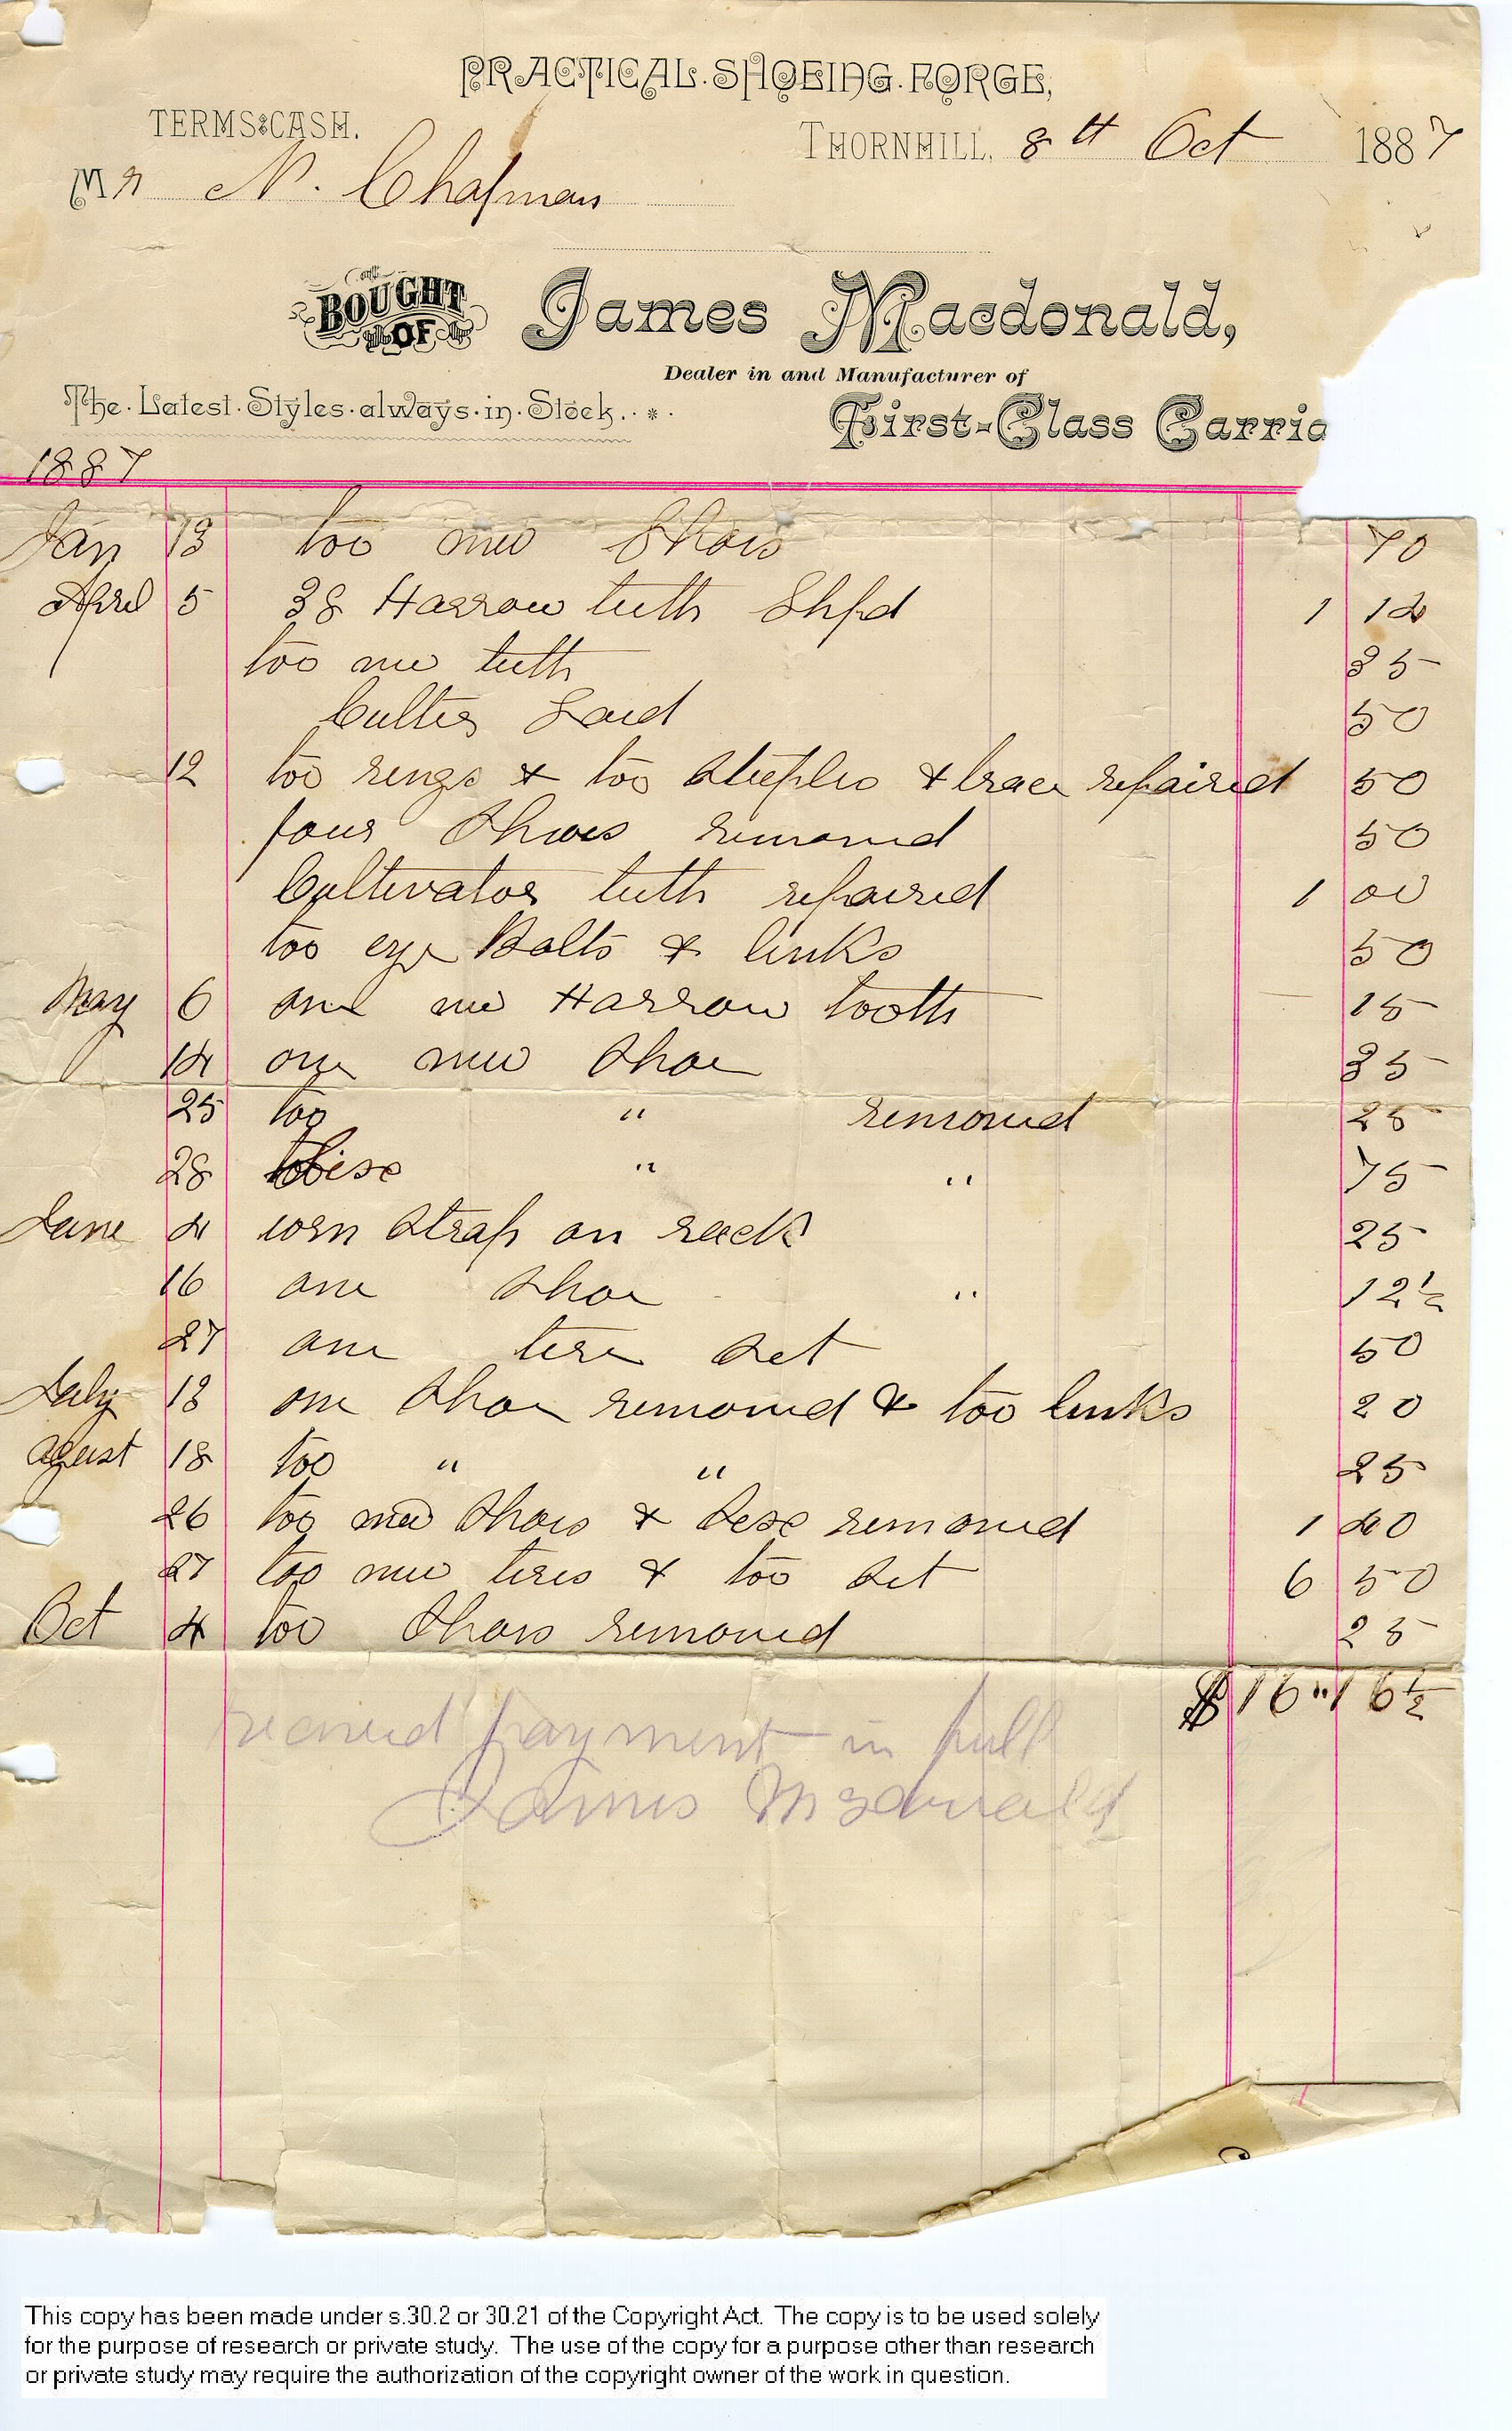 PRACTICAL. SHOEING. FORGE,
TERMS: CASH.
THORNHILL, 8th Oct 1887
Mr N. Chapman
BOUGHT OF James Macdonald,
Dealer in and Manufacturer of
The. Latest. Styles. always. in. Stock.
First-Class Carria
1887
Jan 13 too new Shois 70
April 5 38 Harrow tuth Shpd 1 14
too nu tuth 35
Culter Laid 50
12 too rengs & too steeples & brace repaired 50
four Shoes removed 50
Cultivator tuth repaired 1 00
too eye Bolts & links 50
May 6 one nu Harrow tooth 15
14 one new Shoe 35
25 too " removed 25
28 " " 75
June 4 corn strap on rack 25
16 one shoe " 12½
27 one tire set 50
July 13 one shoe removed & too links 20
Agust 18 too " " 25
26 too new shois & sese removed 1 40
27 too nuw tires & too set 6 50
Oct 4 too Shois removed 25
$16"16½
recived payment in full
James Mcdonald
This copy has been made under s.30.2 or 30.21 of the Copyright Act. The copy is to be used solely
for the purpose of research or private study. The use of the copy for a purpose other than research
or private study may require the authorization of the copyright owner of the work in question.